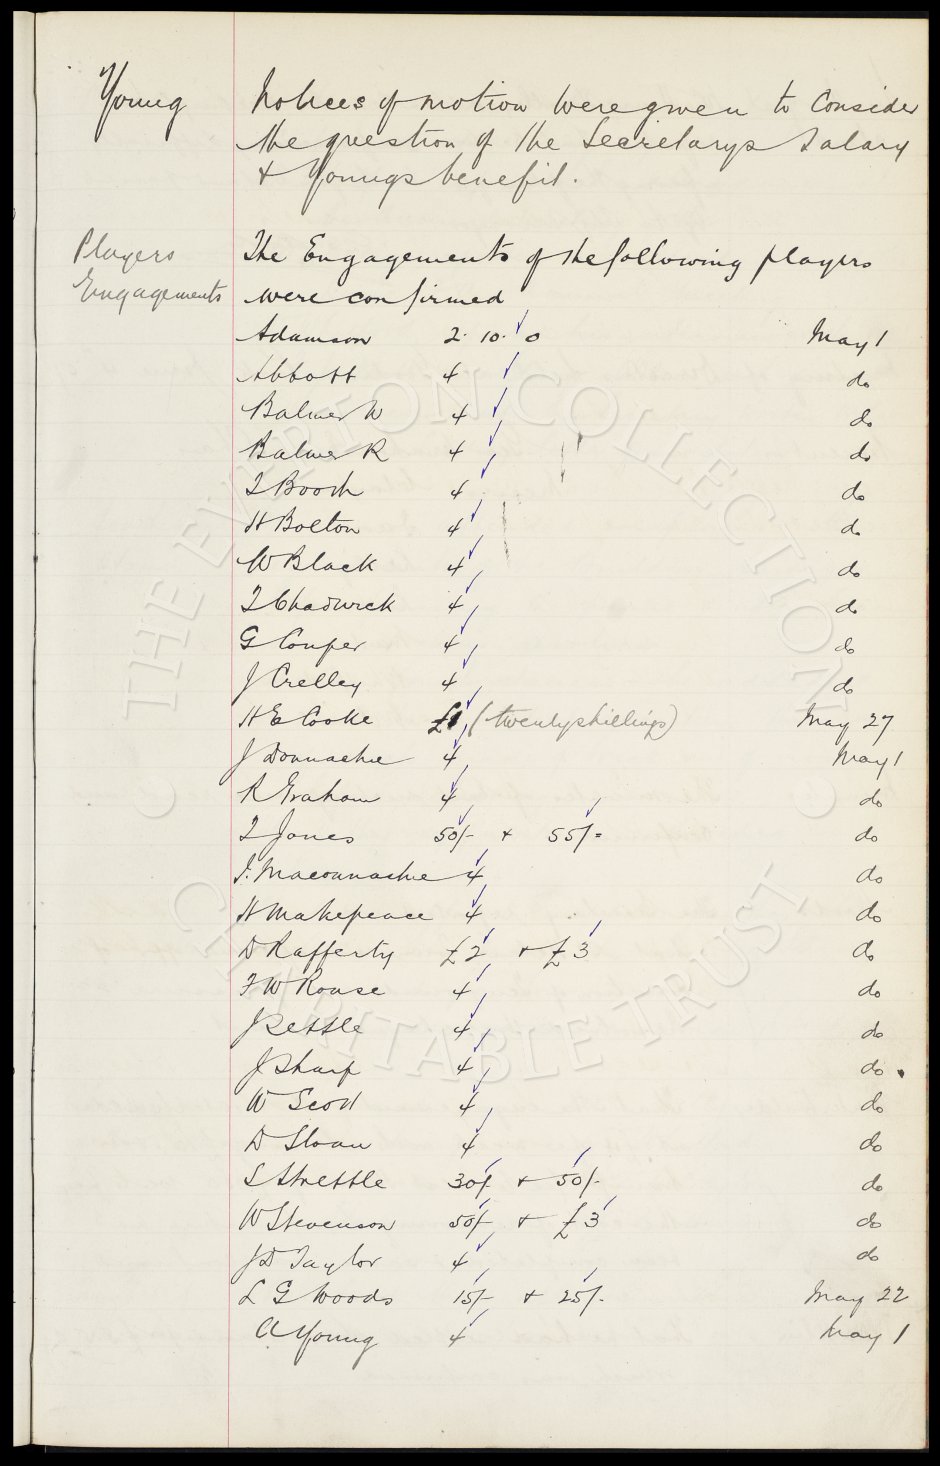 Young
Notices of motion were given to Consider
the question of the Secretarys Salary
+ Youngs benefit.
Players
Engagements
The Engagements of the following players
were confirmed
Adamson 2. 10. 0 May 1
Abbott 4 do
Balmer W 4 do
Balmer R 4 do
T Booth 4 do
H Bolton 4 do
W Black 4 do
T Chadwick 4 do
G Couper 4 do
J Crelley 4 do
H E Cooke £1 (twenty shillings) May 27
J Donnachie 4 May 1
R Graham 4 do
T Jones 50/- + 55/- do
J. Maconnachie 4 do
H Makepeace 4 do
D Rafferty £2 + £3 do
F W Rouse 4 do
J Settle 4 do
J Sharp 4 do
W Scott 4 do
D Sloan 4 do
S Strettle 30/- + 50/- do
W Stevenson 50/- + £3 do
J D Taylor 4 do
L G Woods 15/- + 25/- May 22
A Young 4 May 1
THE EVERTON COLLECTION
CHARITABLE TRUST